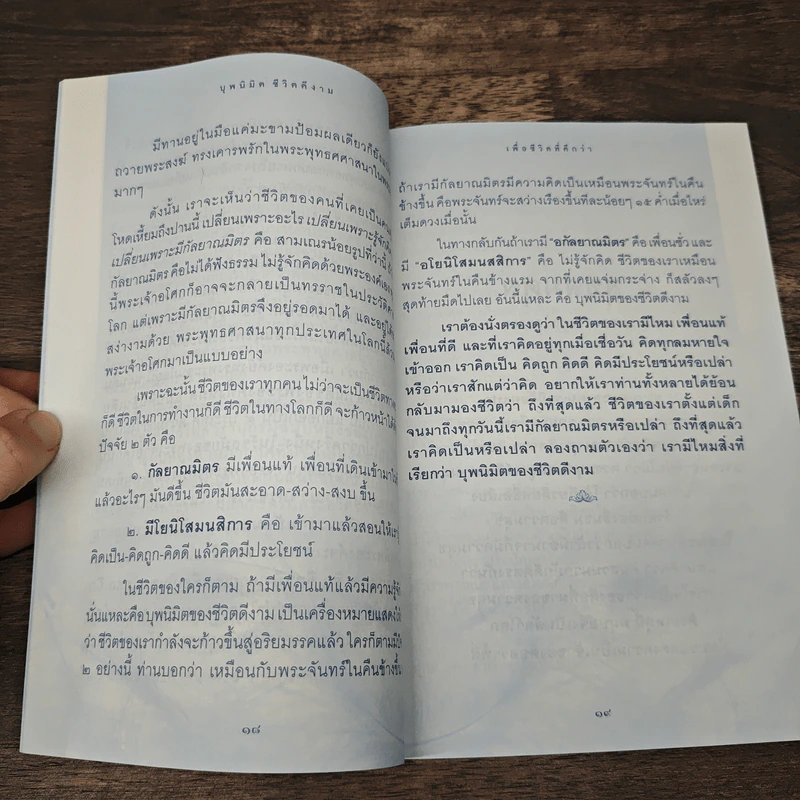 บุพนิมิต ชีวิตดีงาม
มีทานอยู่ในมือแค่มะขามป้อมผลเดียวก็ยัง
ถวายพระสงฆ์ ทรงเคารพรักในพระพุทธศาสนา
มากๆ
ดังนั้น เราจะเห็นว่าชีวิตของคนที่เคยเป็น
โหดเหี้ยมถึงปานนี้ เปลี่ยนเพราะอะไร เปลี่ยนเพราะรู้จัก
เปลี่ยนเพราะมีกัลยาณมิตร คือ สามเณรน้อยรูปที่ว่านี้
กัลยาณมิตร คือไม่ได้ฟังธรรม ไม่รู้จักคิดด้วยพระองค์เอง
นี้พระเจ้าอโศกก็อาจจะกลายเป็นทรราชในประวัติ
โลก แต่เพราะมีกัลยาณมิตรจึงอยู่รอดมาได้ และอยู่
สง่างามด้วย พระพุทธศาสนาทุกประเทศในโลกนี้
พระเจ้าอโศกมาเป็นแบบอย่าง
เพราะฉะนั้น ชีวิตของเราทุกคน ไม่ว่าจะเป็นชีวิต
ก็ดี ชีวิตในการทำงานก็ดี ชีวิตในทางโลกก็ดี จะก้าวหน้าได้
ปัจจัย ๒ ตัว คือ
๑. กัลยาณมิตร มีเพื่อนแท้ เพื่อนที่เดินเข้ามา
แล้วอะไรๆ มันดีขึ้น ชีวิตมันสะอาด-สว่าง-สงบ ขึ้น
๒. มีโยนิโสมนสิการ คือ เข้ามาแล้วสอนให้
คิดเป็น-คิดถูก-คิดดี แล้วคิดมีประโยชน์
ในชีวิตของใครก็ตาม ถ้ามีเพื่อนแท้แล้วมีความรู้
นั่นแหละคือบุพนิมิตของชีวิตดีงาม เป็นเครื่องหมายแสดง
ว่า ชีวิตของเรากำลังจะก้าวขึ้นสู่อริยมรรคแล้ว ใครก็ตามมี
๒ อย่างนี้ ท่านบอกว่า เหมือนกับพระจันทร์ในคืนข้างขึ้น
๑๘
เพื่อชีวิตที่ดีกว่า
ถ้าเรามีกัลยาณมิตรมีความคิดเป็นเหมือนพระจันทร์ในคืน
ข้างขึ้น คือพระจันทร์จะสว่างเรืองขึ้นทีละน้อยๆ ๑๕ ค่ำเมื่อไหร่
เต็มดวงเมื่อนั้น
ในทางกลับกันถ้าเรามี “อกัลยาณมิตร” คือ เพื่อนชั่ว และ
มี “อโยนิโสมนสิการ” คือ ไม่รู้จักคิด ชีวิตของเราเหมือน
พระจันทร์ในคืนข้างแรม จากที่เคยแจ่มกระจ่าง ก็สลัวลงๆ
สุดท้ายมืดไปเลย อันนี้แหละ คือ บุพนิมิตของชีวิตดีงาม
เราต้องนั่งตรองดูว่า ในชีวิตของเรามีไหม เพื่อนแท้
เพื่อนที่ดี และที่เราคิดอยู่ทุกเมื่อเชื่อวัน คิดทุกลมหายใจ
เข้าออก เราคิดเป็น คิดถูก คิดดี คิดมีประโยชน์หรือเปล่า
หรือว่าเราสักแต่ว่าคิด อยากให้เราท่านทั้งหลายได้ย้อน
กลับมามองชีวิตว่า ถึงที่สุดแล้ว ชีวิตของเราตั้งแต่เด็ก
จนมาถึงทุกวันนี้เรามีกัลยาณมิตรหรือเปล่า ถึงที่สุดแล้ว
เราคิดเป็นหรือเปล่า ลองถามตัวเองว่า เรามีไหมสิ่งที่
เรียกว่า บุพนิมิตของชีวิตดีงาม
๑๙